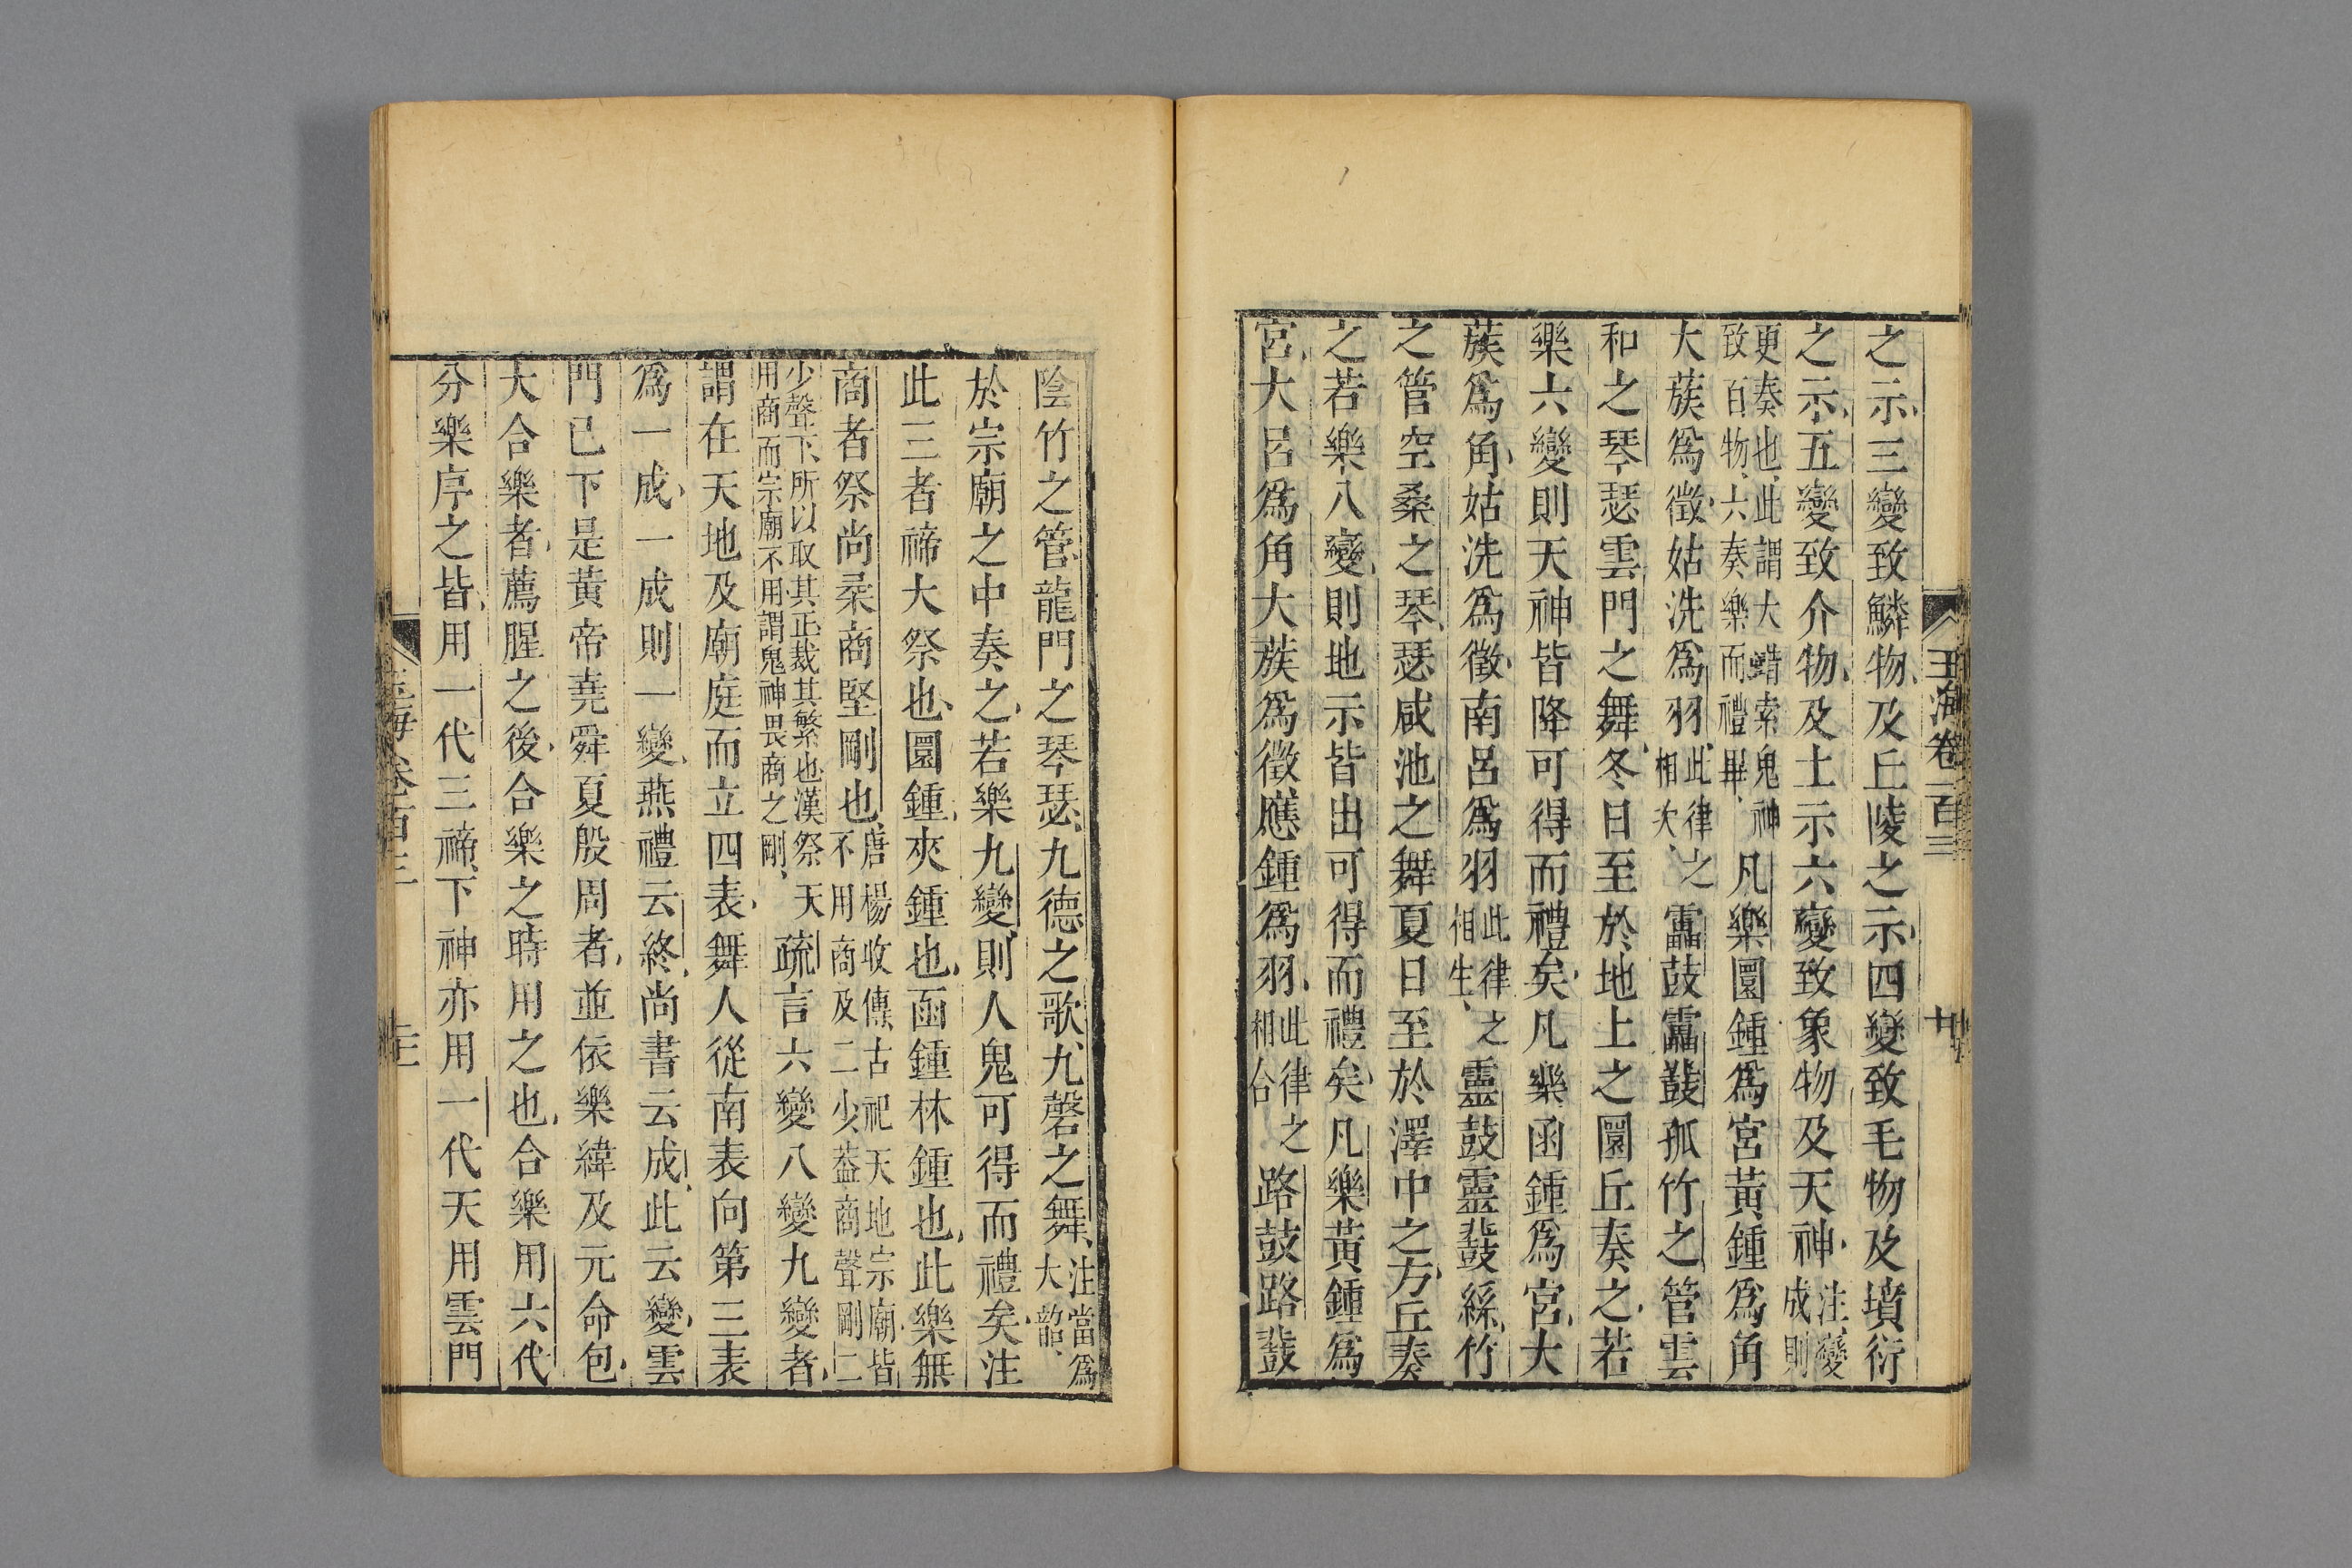 之示三變致鱗物及丘陵之示四變致毛物及墳衍
之示五變致介物及土示六變致象物及天神注變成則
更奏也此謂大蜡索鬼神致百物六奏樂而禮畢凡樂圜鍾爲宮黃鍾爲角
大蔟爲徵姑洗爲羽此律之相次靁鼓靁鼗孤竹之管雲
和之琴瑟雲門之舞冬日至於地上之圜丘奏之若
樂六變則天神皆降可得而禮矣凡樂函鍾爲宮大
蔟爲角姑洗爲徵南呂爲羽此律之相生靈鼓靈鼗絲竹
之管空桑之琴瑟咸池之舞夏日至於澤中之方丘奏
之若樂八變則地示皆出可得而禮矣凡樂黃鍾爲
宮大呂爲角大蔟爲徵應鍾爲羽此律之相合路鼓路鼗
玉海卷一百三
陰竹之管龍門之琴瑟九德之歌九磬之舞注當爲大韶
於宗廟之中奏之若樂九變則人鬼可得而禮矣注
此三者禘大祭也圜鍾夾鍾也函鍾林鍾也此樂無
商者祭尚柔商堅剛也唐楊收傳古祀天地宗廟皆不用商及二少葢商聲剛二
少聲下所以取其正裁其繁也漢祭天用商而宗廟不用謂鬼神畏商之剛疏言六變八變九變者
謂在天地及廟庭而立四表舞人從南表向第二表
爲一成一成則一變燕禮云終尚書云成此云變雲
門已下是黃帝堯舜夏殷周者並依樂緯及元命包
大合樂者薦腥之後合樂之時用之也合樂用六代
分樂序之皆用一代三禘下神亦用一代天用雲門